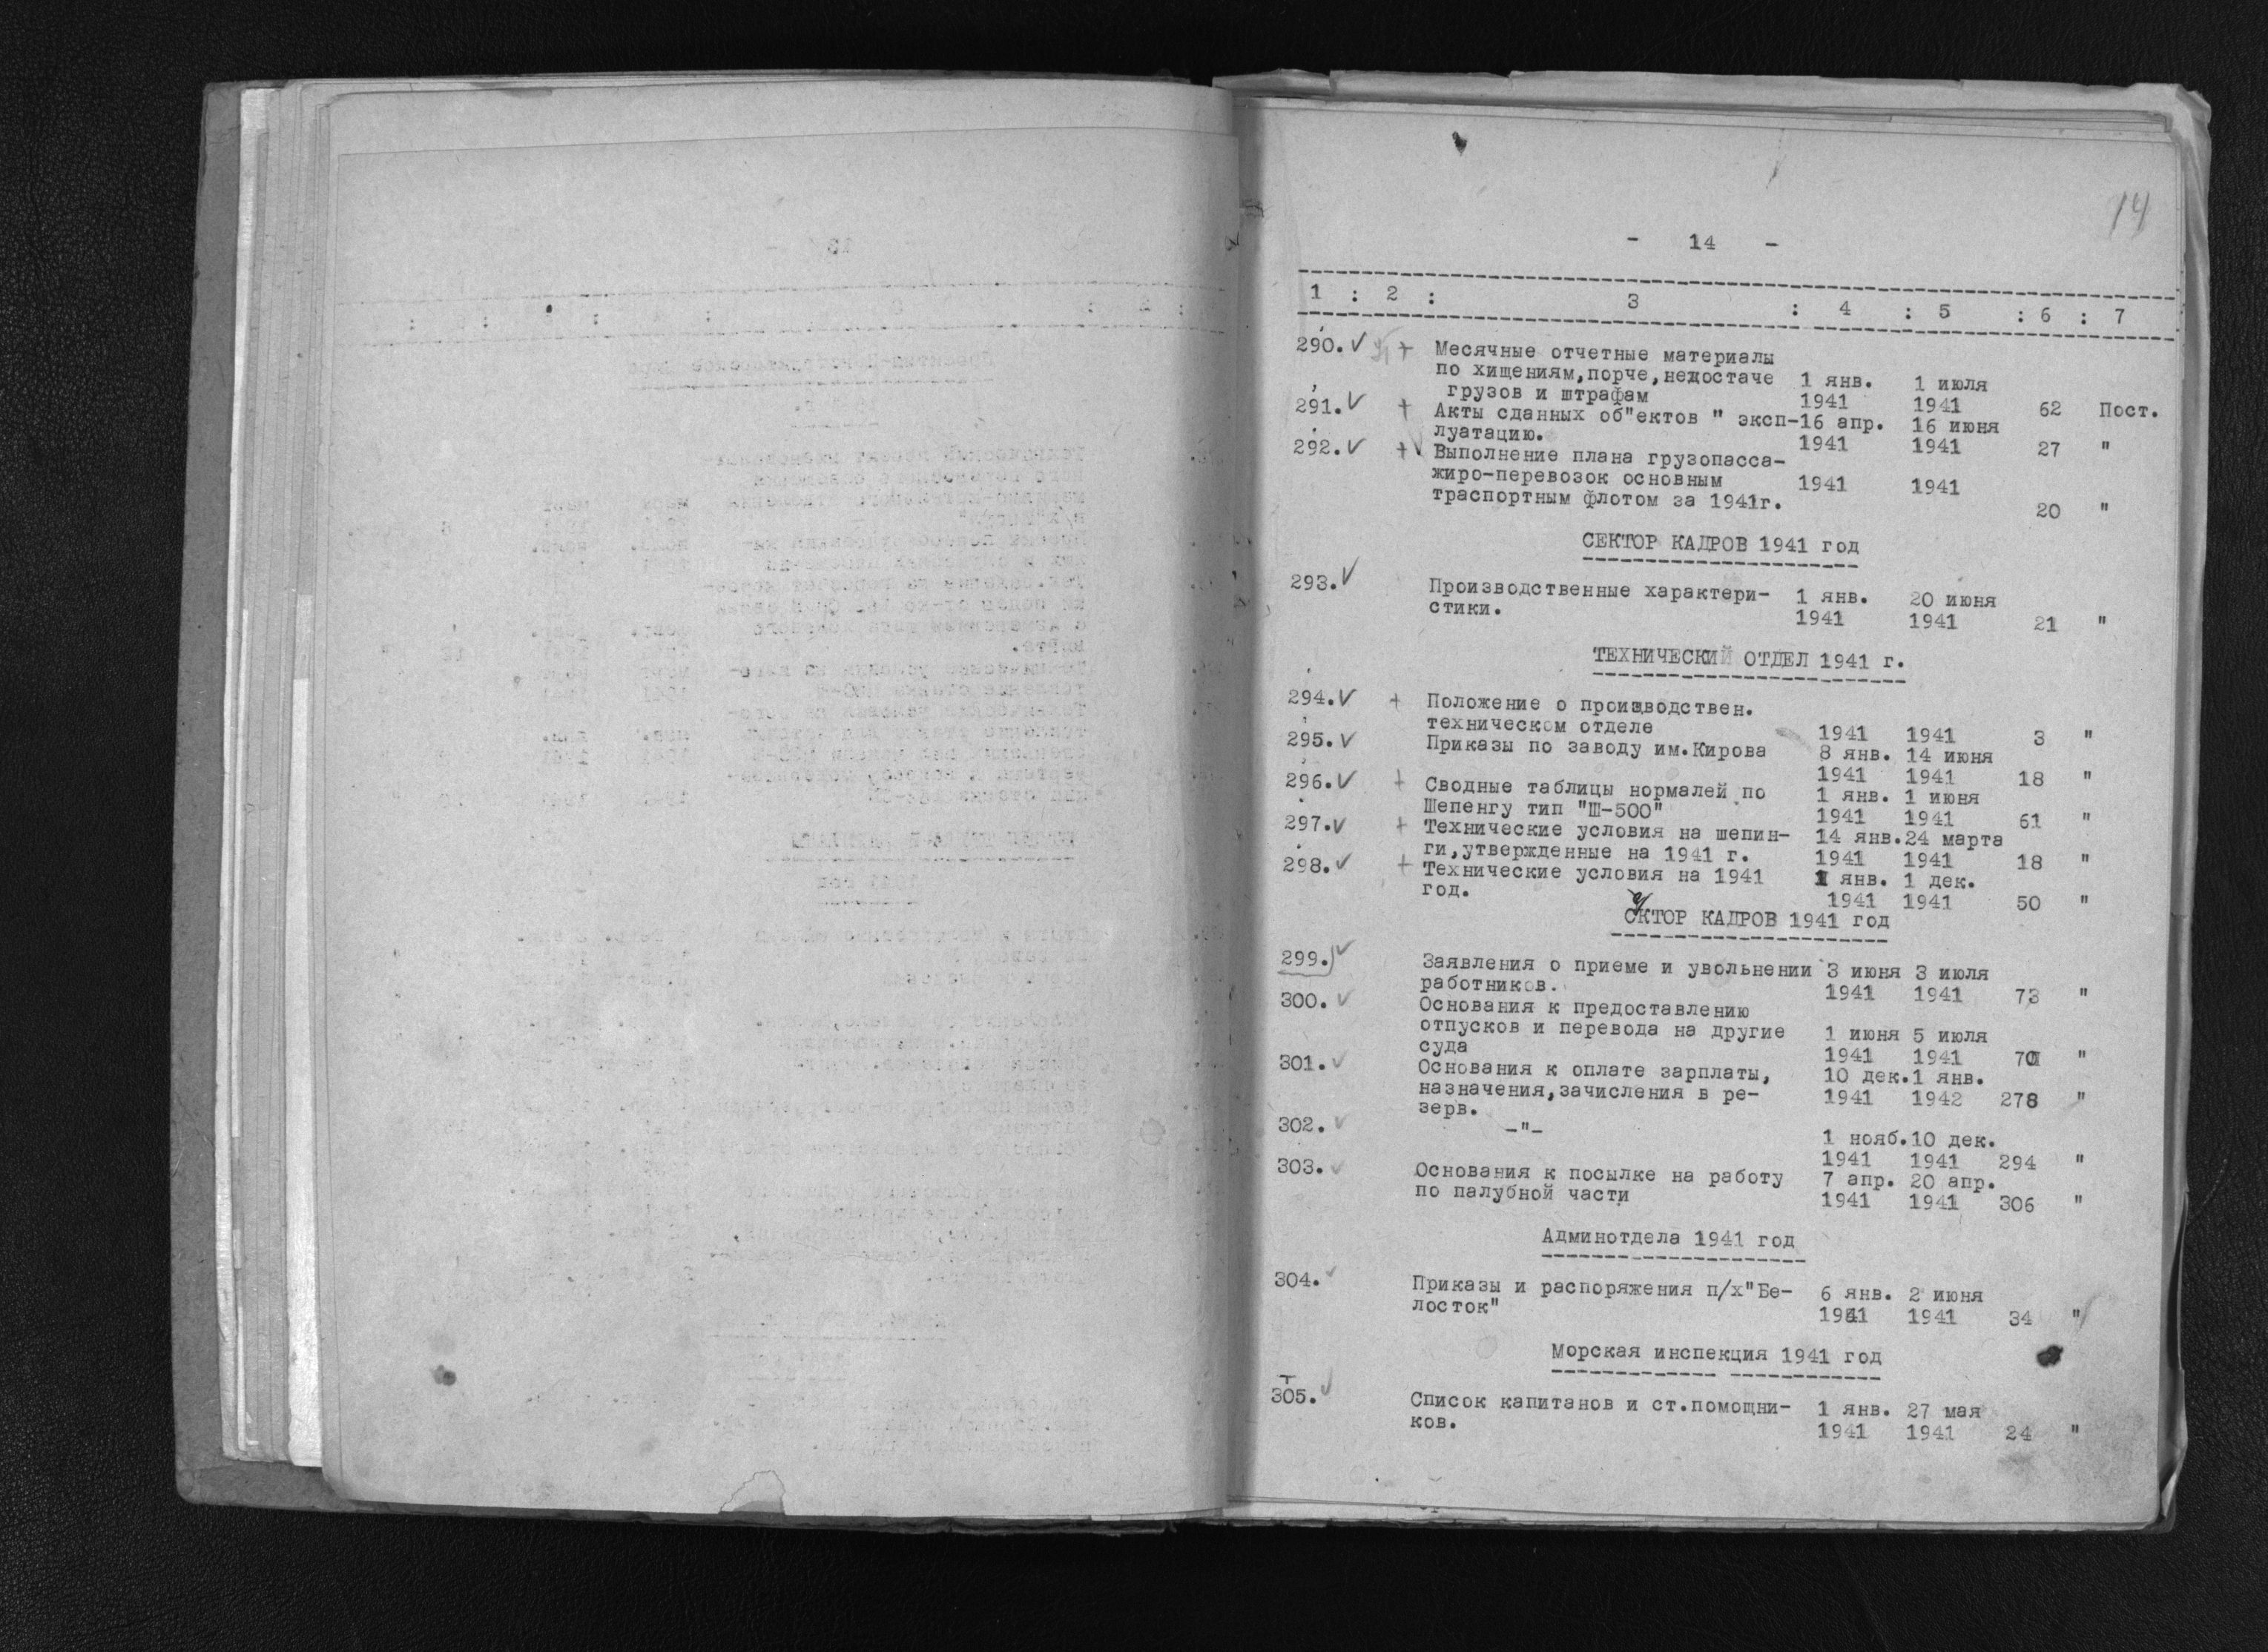 14
- 14 -
1 : 2 : 3 : 4 : 5 : 6 : 7
290. Месячные отчетные материалы
по хищениям,порче,недостаче 1 янв. 1 июля
грузов и штрафам 1941 1941 62 Пост.
291. Акты сданных об"ектов " эксп- 16 апр. 16 июня
луатацию. 1941 1941 27 "
292. Выполнение плана грузопасса-
жиро-перевозок основным 1941 1941
траспортным флотом за 1941г. 20 "
СЕКТОР КАДРОВ 1941 год
293. Производственные характери- 1 янв. 20 июня
стики. 1941 1941 21 "
ТЕХНИЧЕСКИЙ ОТДЕЛ 1941 г.
294. Положение о производствен.
техническом отделе 1941 1941 3 "
295. Приказы по заводу им.Кирова 8 янв. 14 июня
1941 1941 18 "
296. Сводные таблицы нормалей по 1 янв. 1 июня
Шепенгу тип "Ш-500" 1941 1941 61 "
297. Технические условия на шепин- 14 янв. 24 марта
ги,утвержденные на 1941 г. 1941 1941 18 "
298. Технические условия на 1941 1 янв. 1 дек.
год. 1941 1941 50 "
СКТОР КАДРОВ 1941 год
299. Заявления о приеме и увольнении 3 июня 3 июля
работников. 1941 1941 73 "
300. Основания к предоставлению
отпусков и перевода на другие 1 июня 5 июля
суда 1941 1941 70 "
301. Основания к оплате зарплаты, 10 дек. 1 янв.
назначения,зачисления в ре- 1941 1942 278 "
зерв.
302. -"- 1 нояб. 10 дек.
1941 1941 294 "
303. Основания к посылке на работу 7 апр. 20 апр.
по палубной части 1941 1941 306 "
Админотдела 1941 год
304. Приказы и распоряжения п/х"Бе- 6 янв. 2 июня
лосток" 1941 1941 34 "
Морская инспекция 1941 год
305. Список капитанов и ст.помощни- 1 янв. 27 мая
ков. 1941 1941 24 "